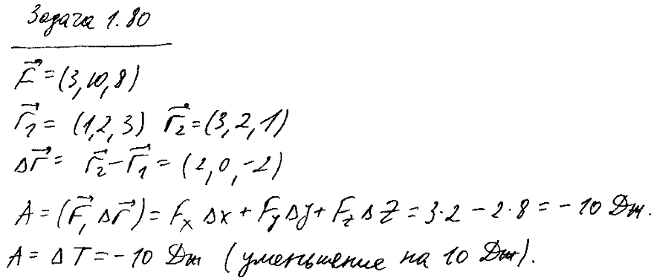 Задача 1.80
F⃗ = (3, 10, 8)
r⃗₁ = (1, 2, 3) r⃗₂ = (3, 2, 1)
Δr⃗ = r⃗₂ − r⃗₁ = (2, 0, −2)
A = (F⃗, Δr⃗) = Fₓ Δx + Fᵧ Δy + F_z ΔZ = 3·2 − 2·8 = −10 Дж.
A = ΔT = −10 Дж (уменьшение на 10 Дж).